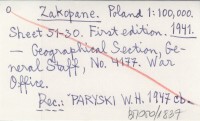 o Zakopane. Poland 1:100,000.
Sheet 51-30. First edition. 1941.
— Geographical Section, Ge-
neral Staff, No. 4177. War
Office.
Rec.: PARYSKI W.H. 1947 cb.
51000/1837